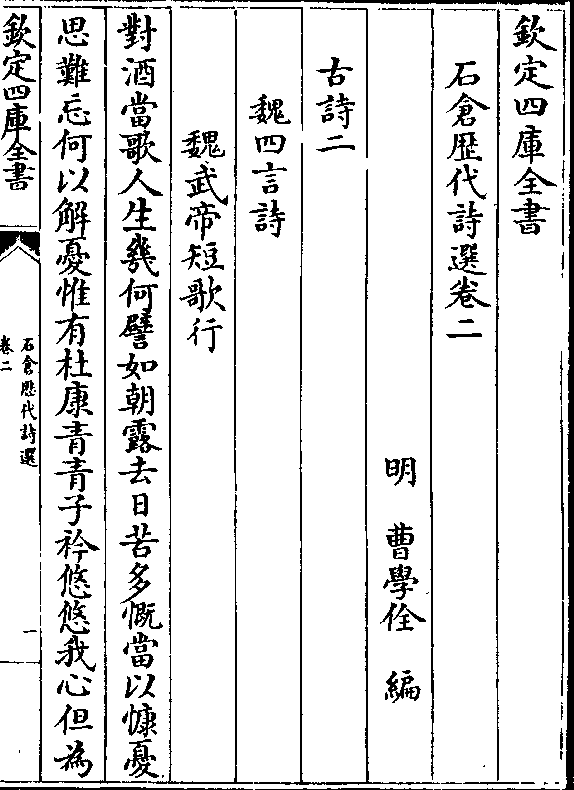 欽定四庫全書
石倉歷代詩選卷二
明 曹學佺 編
古詩二
魏四言詩
魏武帝短歌行
對酒當歌人生幾何譬如朝露去日苦多慨當以慷憂
思難忘何以解憂惟有杜康青青子衿悠悠我心但為
欽定四庫全書
石倉歷代詩選
卷二
一